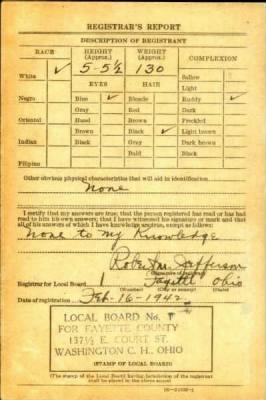 REGISTRAR'S REPORT
DESCRIPTION OF REGISTRANT
RACE HEIGHT (Approx.) WEIGHT (Approx.) COMPLEXION
White ✓ 5-5½ 130 Sallow
EYES HAIR Light
Negro Blue ✓ Blonde Ruddy ✓
Gray Red Dark
Oriental Hazel Brown Freckled
Brown Black ✓ Light brown
Indian Black Gray Dark brown
Bald Black
Filipino
Other obvious physical characteristics that will aid in identification
None
I certify that my answers are true; that the person registered has read or has had
read to him his own answers; that I have witnessed his signature or mark and that
all of his answers of which I have knowledge are true, except as follows:
None to my Knowledge
Jefferson
(Signature of registrar)
Registrar for Local Board 1 Fayette Ohio
(Number) (City or county) (State)
Date of registration Feb-16-1942
LOCAL BOARD No. 1
FOR FAYETTE COUNTY
137½ E. COURT ST.
WASHINGTON C. H., OHIO
(STAMP OF LOCAL BOARD)
(The stamp of the Local Board having jurisdiction of the registrant
shall be placed in the above space)